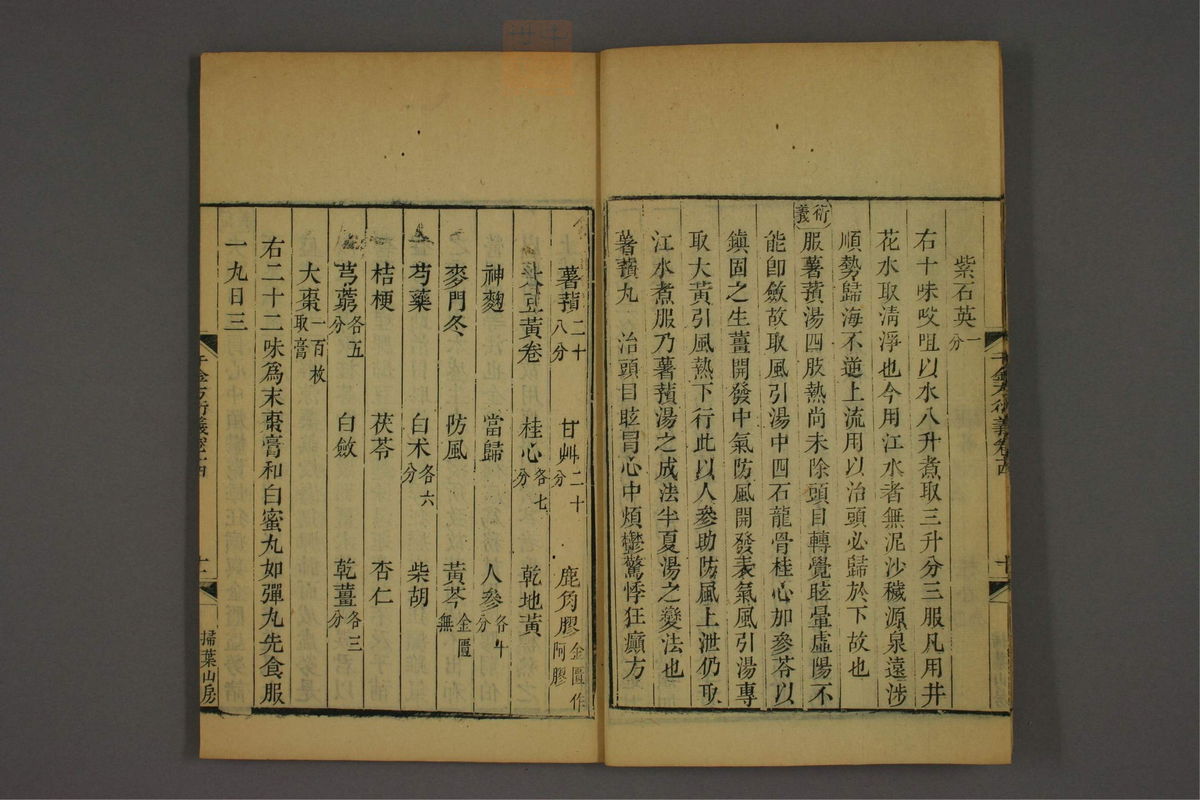 紫石英一分
右十味㕮咀以水八升煮取三升分三服凡用井
花水取清淨也今用江水者無泥沙穢源泉遠涉
順勢歸海不逆上流用以治頭必歸於下故也
衍義服薯蕷湯四肢熱尚未除頭目轉覺眩暈虛陽不
能卽斂故取風引湯中四石龍骨桂心加參苓以
鎮固之生薑開發中氣防風開發表氣風引湯專
取大黃引風熱下行此以人參助防風上泄仍取
江水煮服乃薯蕷湯之成法半夏湯之變法也
薯蕷丸 治頭目眩冒心中煩鬱驚悸狂癲方
千金方衍義卷十四 十
薯蕷二十八分 甘艸二十分 鹿角膠金匱作阿膠
大豆黃卷 桂心各七分 乾地黃
神麴 當歸 人參各十分
麥門冬 防風 黃芩金匱無
芍藥 白朮各六分 柴胡
桔梗 茯苓 杏仁
芎藭各五分 白斂 乾薑各三分
大棗一百枚取膏
右二十二味爲末棗膏和白蜜丸如彈丸先食服
一丸日三
千金方衍義卷十四 十一 掃葉山房